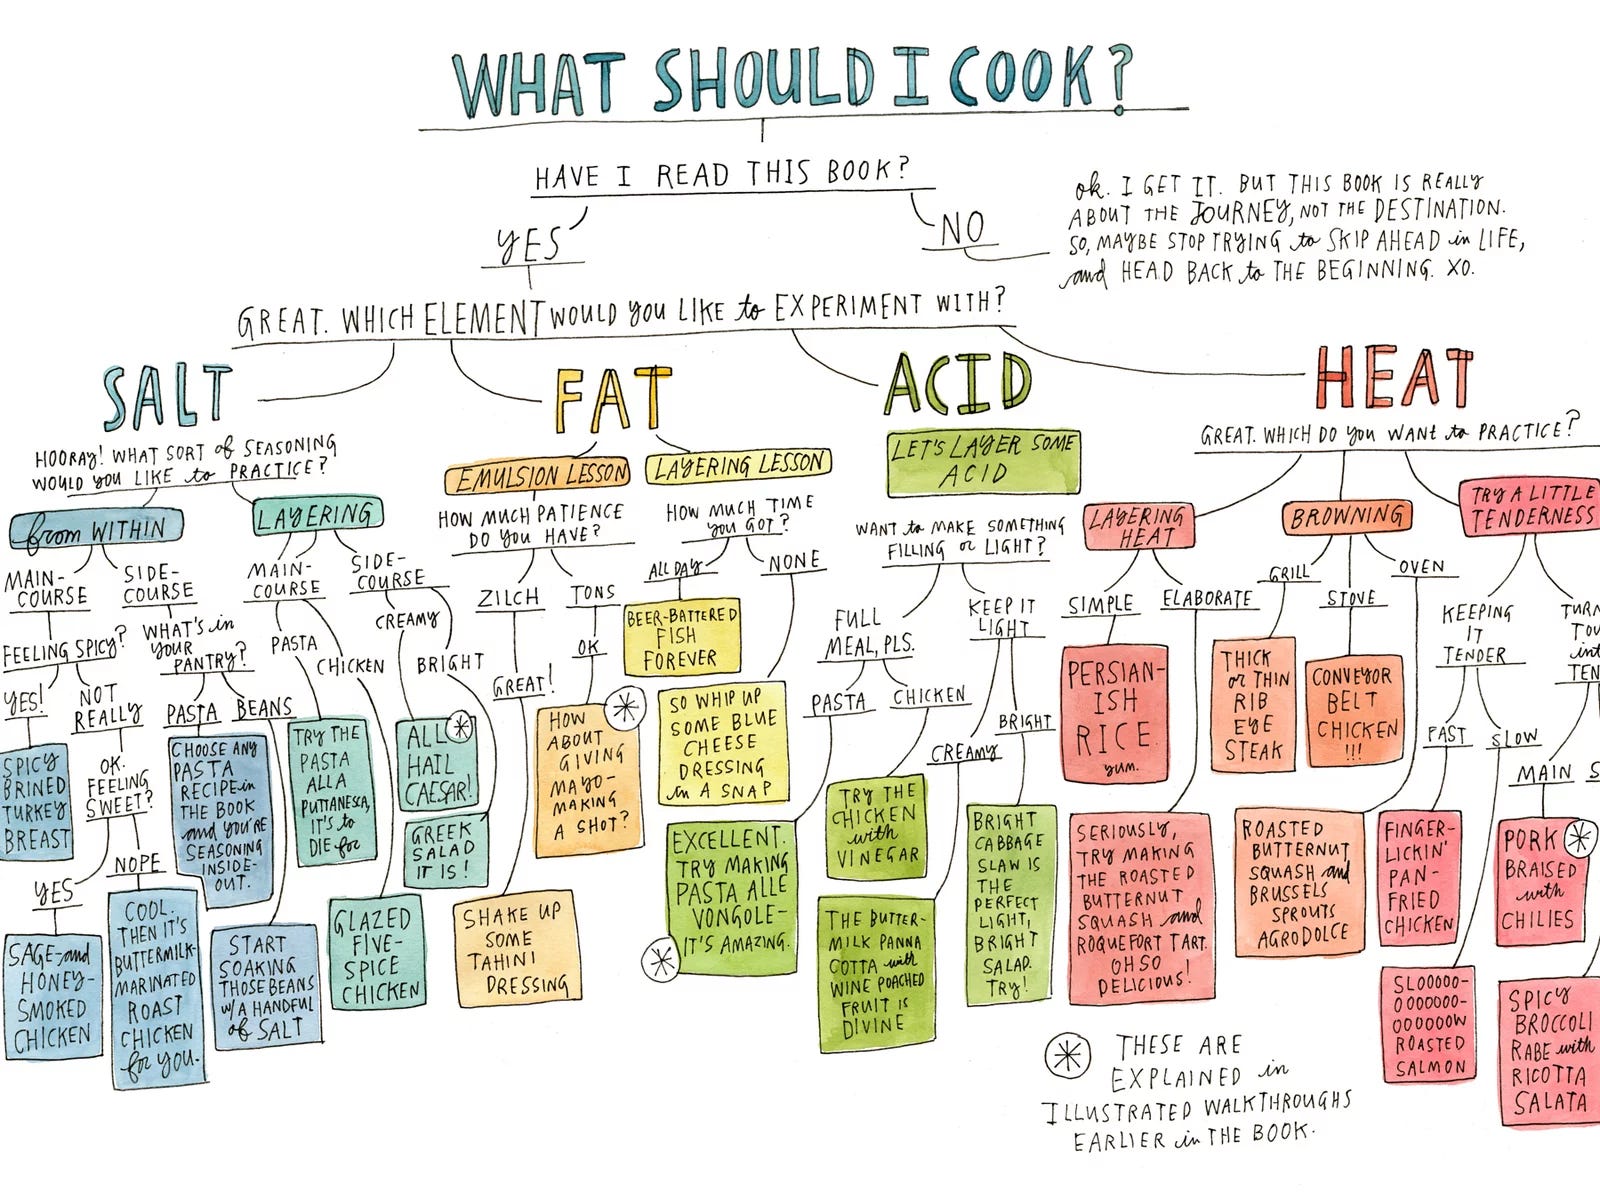 WHAT SHOULD I COOK?
HAVE I READ THIS BOOK?
YES
NO
ok. I GET IT. BUT THIS BOOK IS REALLY
ABOUT THE JOURNEY, NOT THE DESTINATION.
SO, MAYBE STOP TRYING to SKIP AHEAD in LIFE,
and HEAD BACK to THE BEGINNING. XO.
GREAT. WHICH ELEMENT WOULD YOU LIKE to EXPERIMENT WITH?
SALT
HOORAY! WHAT SORT of SEASONING
WOULD YOU LIKE to PRACTICE?
from WITHIN
MAIN-
COURSE
FEELING SPICY?
YES!
SPICY
BRINED
TURKEY
BREAST
NOT
REALLY
OK.
FEELING
SWEET?
YES
SAGE-and
HONEY-
SMOKED
CHICKEN
NOPE
COOL.
THEN IT'S
BUTTERMILK-
MARINATED
ROAST
CHICKEN
for YOU.
SIDE-
COURSE
WHAT'S in
YOUR
PANTRY?
PASTA
CHOOSE ANY
PASTA
RECIPE in
THE BOOK
and YOU'RE
SEASONING
INSIDE-
OUT.
BEANS
START
SOAKING
THOSE BEANS
W/A HANDFUL
of SALT
LAYERING
MAIN-
COURSE
PASTA
TRY THE
PASTA
ALLA
PUTTANESCA,
IT'S to
DIE for
CHICKEN
GLAZED
FIVE-
SPICE
CHICKEN
SIDE-
COURSE
CREAMY
ALL
HAIL
CAESAR!
BRIGHT
GREEK
SALAD
IT IS!
FAT
EMULSION LESSON
HOW MUCH PATIENCE
DO YOU HAVE?
ZILCH
GREAT!
SHAKE UP
SOME
TAHINI
DRESSING
TONS
OK
HOW
ABOUT
GIVING
MAYO-
MAKING
A SHOT?
LAYERING LESSON
HOW MUCH TIME
YOU GOT?
ALL DAY
BEER-BATTERED
FISH
FOREVER
NONE
SO WHIP UP
SOME BLUE
CHEESE
DRESSING
in A SNAP
ACID
LET'S LAYER SOME
ACID
WANT to MAKE SOMETHING
FILLING or LIGHT?
FULL
MEAL, PLS.
PASTA
EXCELLENT.
TRY MAKING
PASTA ALLE
VONGOLE-
IT'S AMAZING.
CHICKEN
TRY THE
CHICKEN
with
VINEGAR
KEEP IT
LIGHT
CREAMY
THE BUTTER-
MILK PANNA
COTTA with
WINE POACHED
FRUIT IS
DIVINE
BRIGHT
BRIGHT
CABBAGE
SLAW IS
THE
PERFECT
LIGHT,
BRIGHT
SALAD.
TRY!
HEAT
GREAT. WHICH DO YOU WANT to PRACTICE?
LAYERING
HEAT
SIMPLE
PERSIAN-
ISH
RICE
yum.
ELABORATE
SERIOUSLY,
TRY MAKING
THE ROASTED
BUTTERNUT
SQUASH and
ROQUEFORT TART.
OH SO
DELICIOUS!
BROWNING
GRILL
THICK
or THIN
RIB
EYE
STEAK
STOVE
CONVEYOR
BELT
CHICKEN
!!!
OVEN
ROASTED
BUTTERNUT
SQUASH and
BRUSSELS
SPROUTS
AGRODOLCE
TRY A LITTLE
TENDERNESS
KEEPING
IT
TENDER
FAST
FINGER-
LICKIN'
PAN-
FRIED
CHICKEN
SLOW
SLOOOOO-
OOOOOOO-
OOOOOOW
ROASTED
SALMON
TURN
TOU
into
TEN
MAIN
S
PORK
BRAISED
with
CHILIES
SPICY
BROCCOLI
RABE with
RICOTTA
SALATA
THESE ARE
EXPLAINED in
ILLUSTRATED WALKTHROUGHS
EARLIER in THE BOOK.